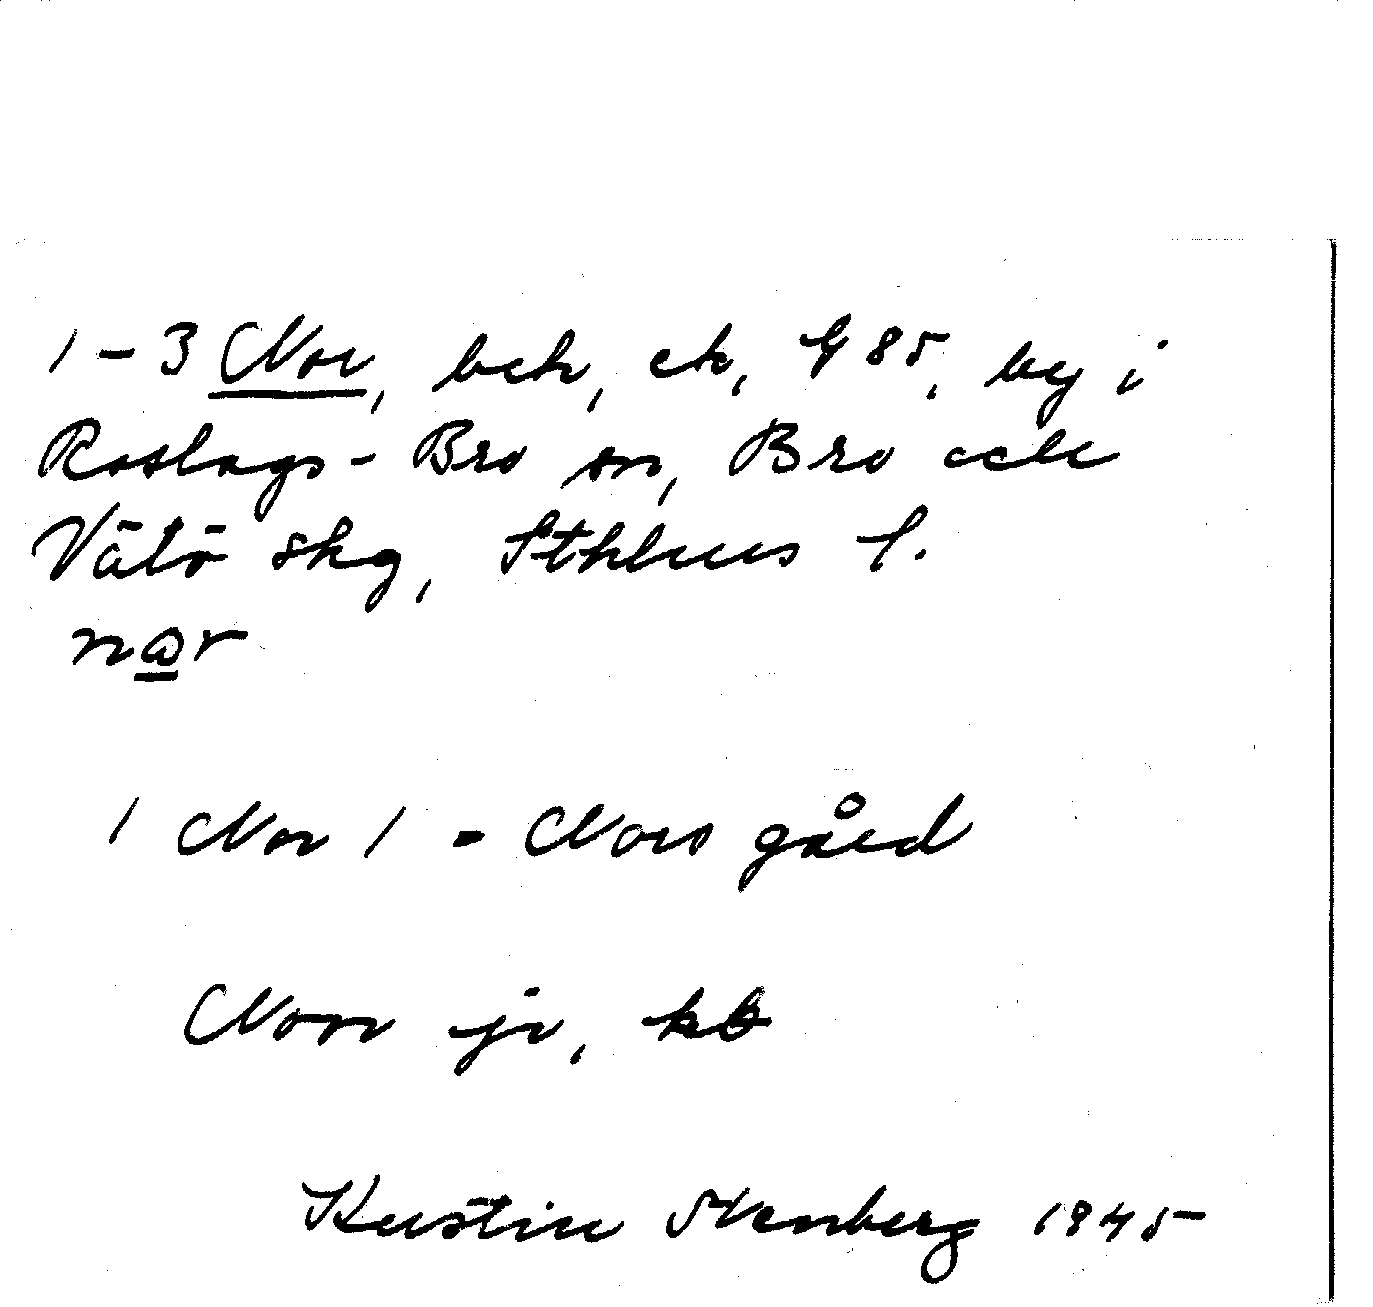 1-3 Nor, beh, ek, G 85, by i
Roslags-Bro sn, Bro och
Vätö skg, Sthlms l.
nω̲r
1 Nor 1 = Nors gård
Norr jv, kb
Kerstin Stenberg 1945